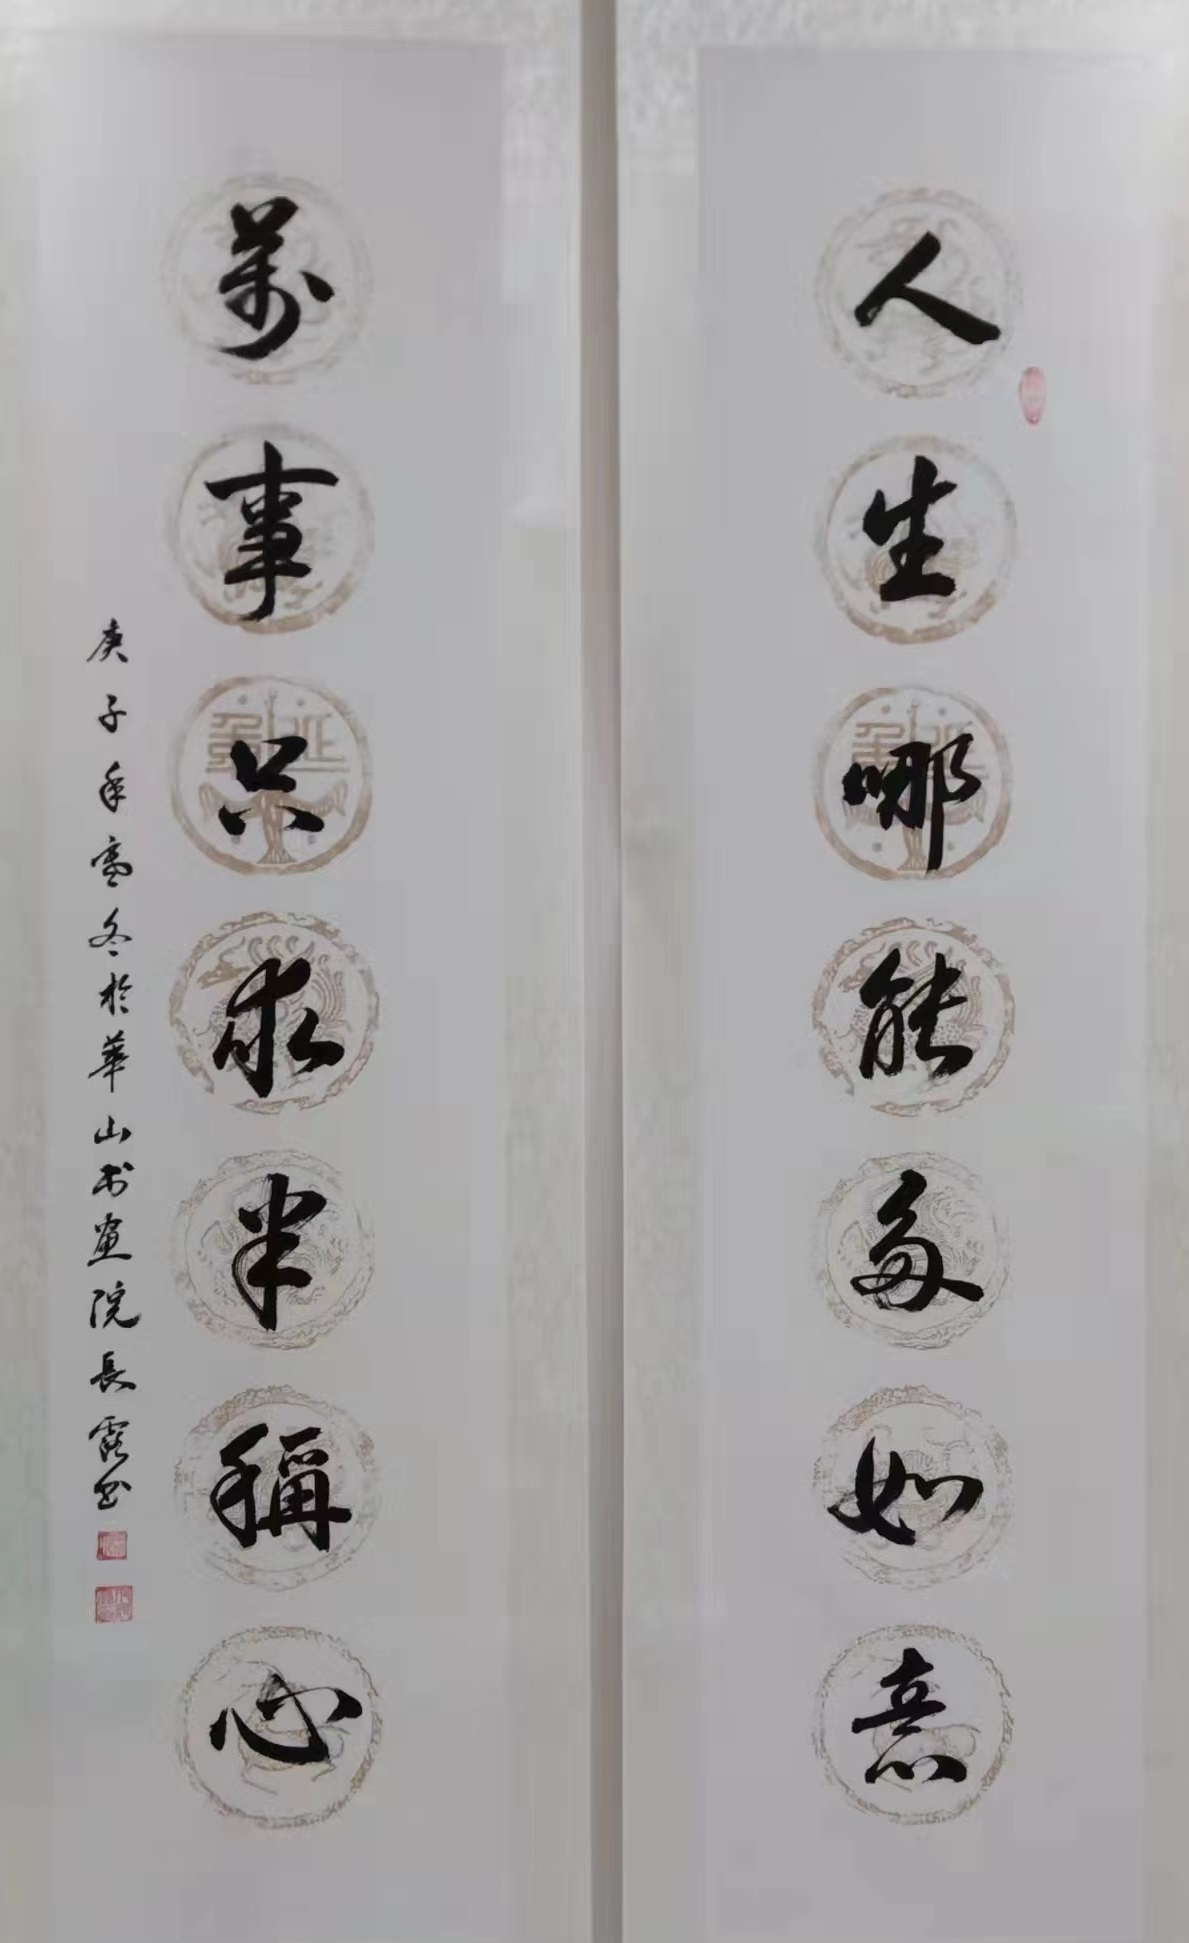 人生哪能多如意
萬事只求半稱心
庚子年寒冬於華山书畫院長霞书